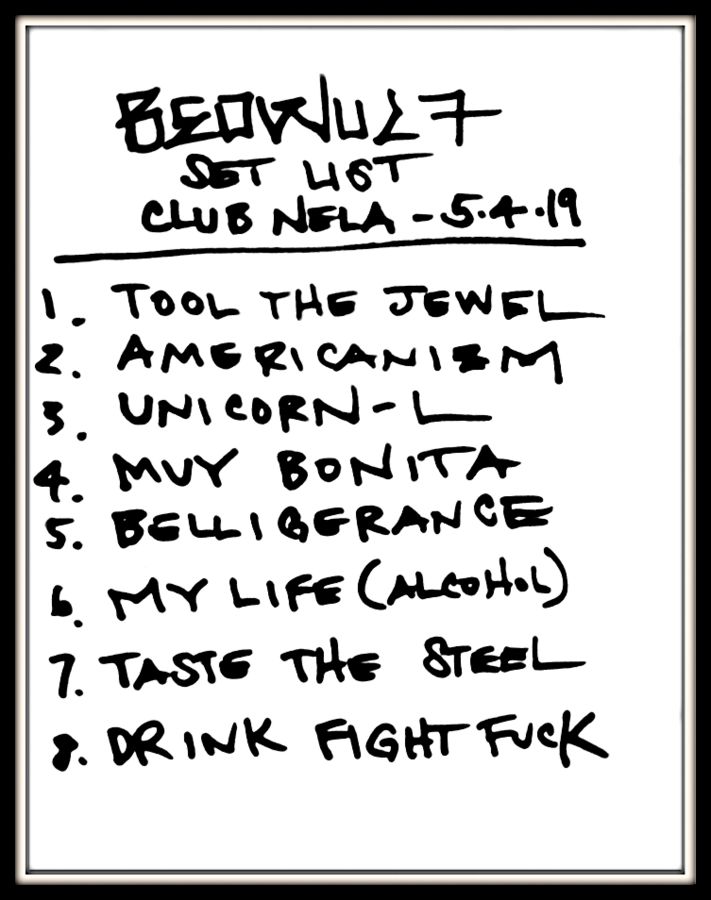 BEOWULF
SET LIST
CLUB NELA - 5.4.19
1. TOOL THE JEWEL
2. AMERICANIZM
3. UNICORN-L
4. MUY BONITA
5. BELLIGERANCE
6. MY LIFE (ALCOHOL)
7. TASTE THE STEEL
8. DRINK FIGHT FUCK